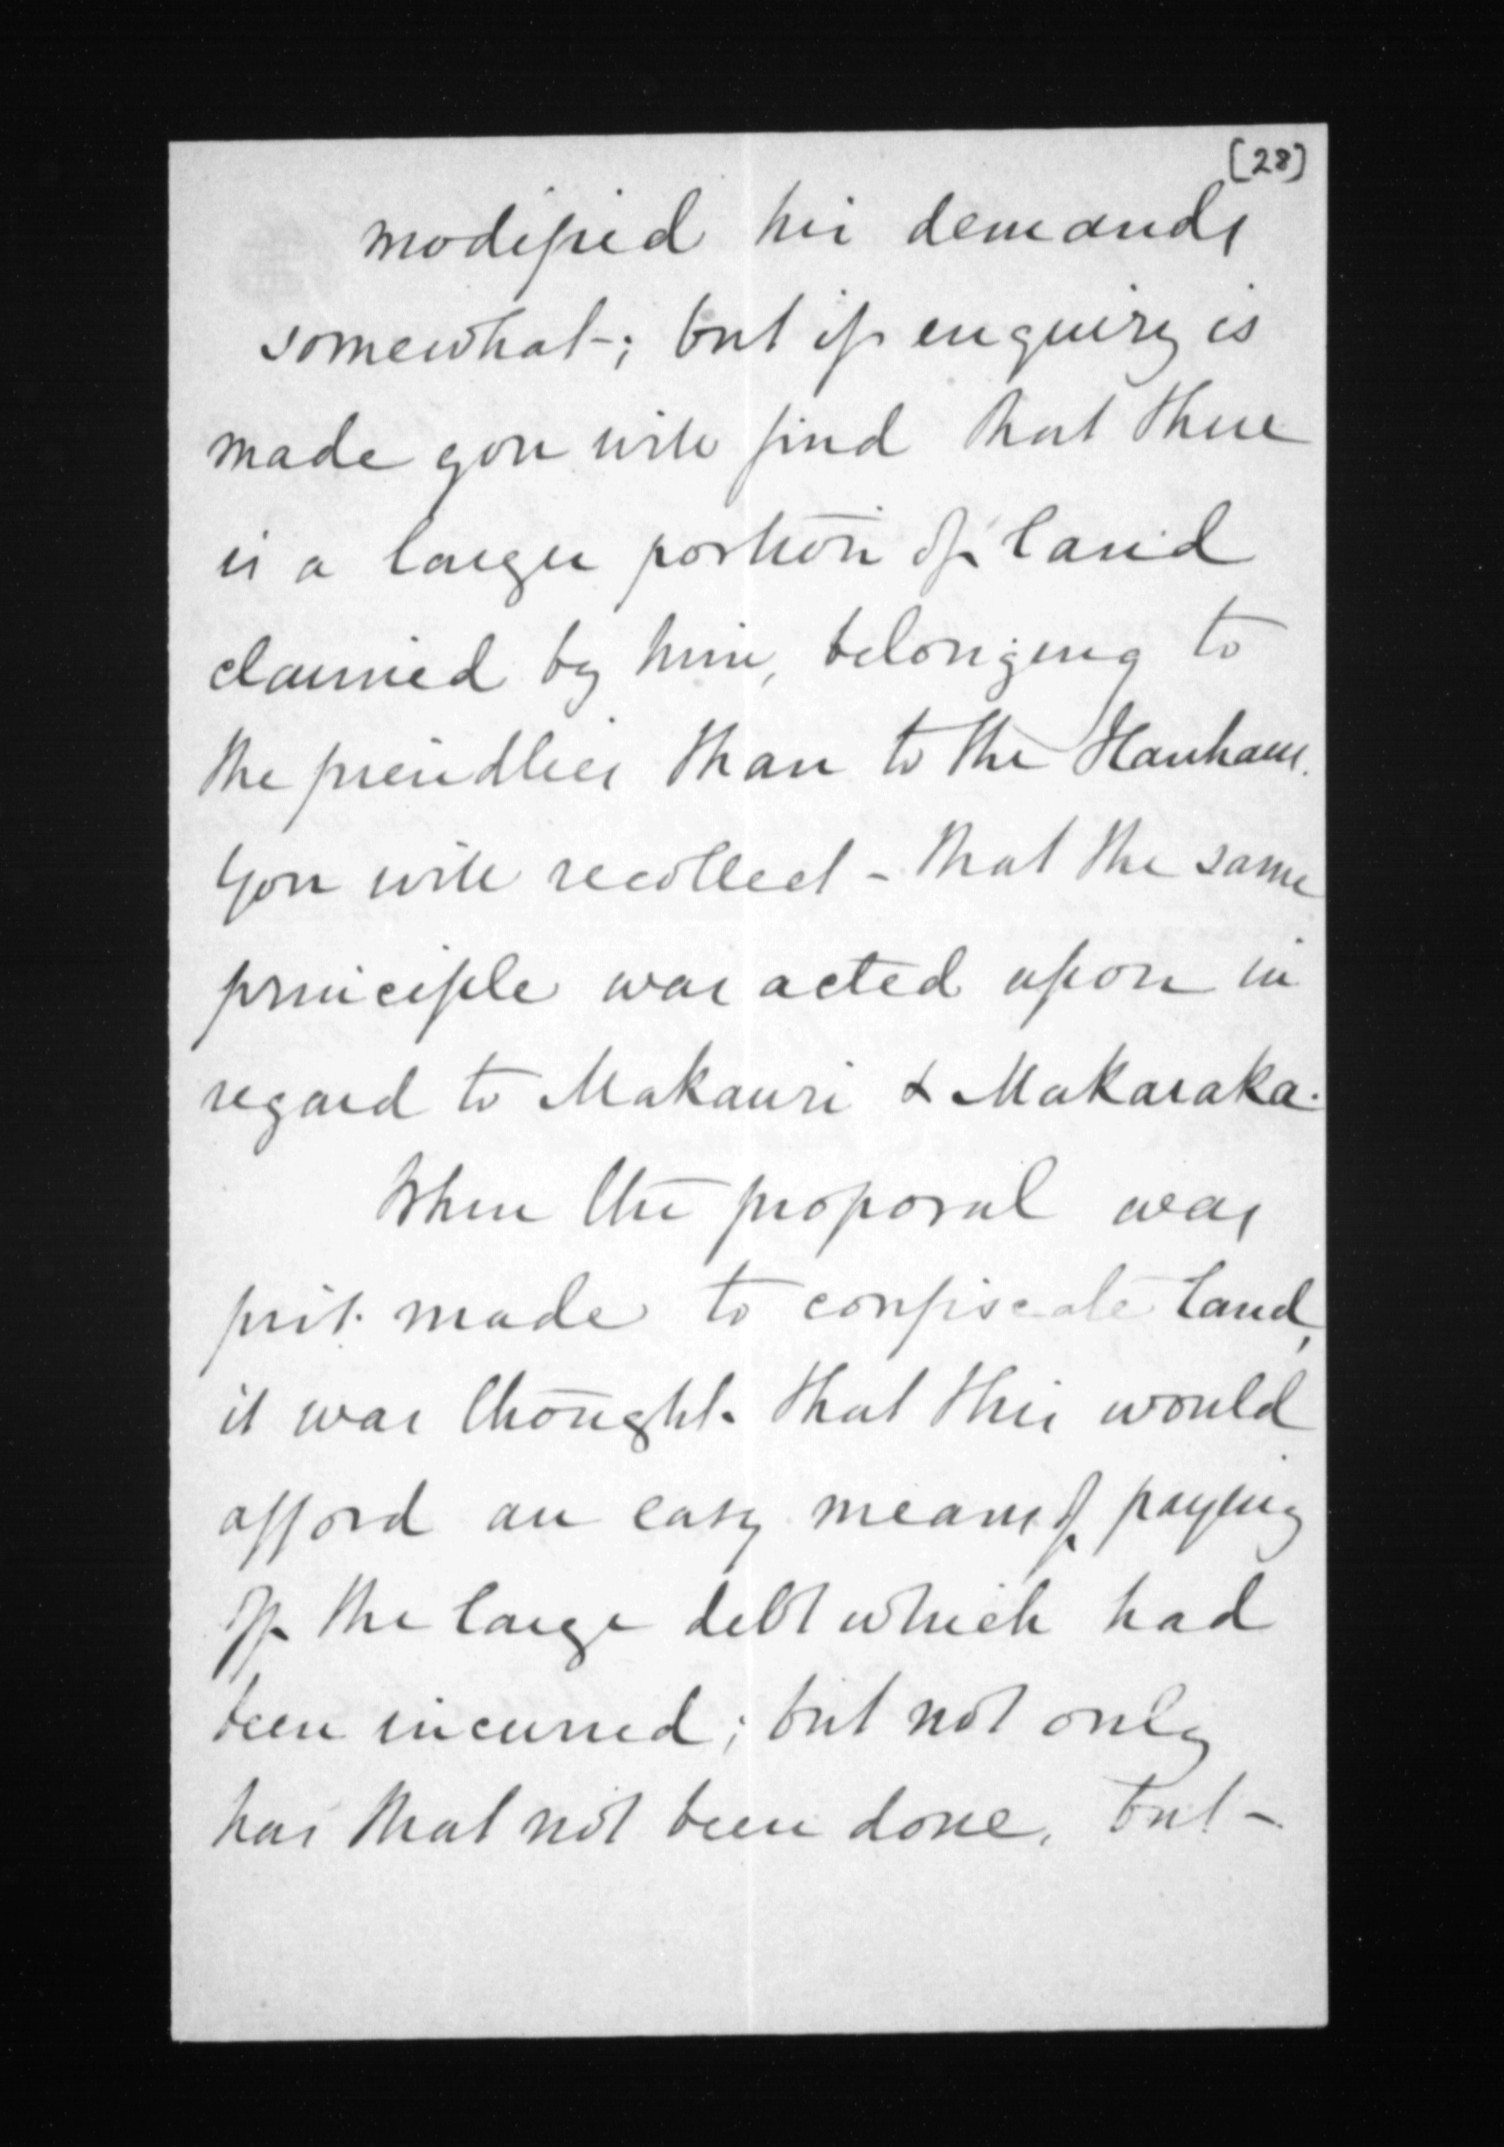 [28]
modified his demands
somewhat; but if enquiry is
made you will find that there
is a larger portion of land
claimed by him, belonging to
the friendlies than to the Hauhaus.
You will recollect that the same
principle was acted upon in
regard to Makauri & Makaraka.
When the proposal was
first made to confiscate land,
it was thought that this would
afford an easy means of paying
off the large debt which had
been incurred; but not only
has that not been done, but